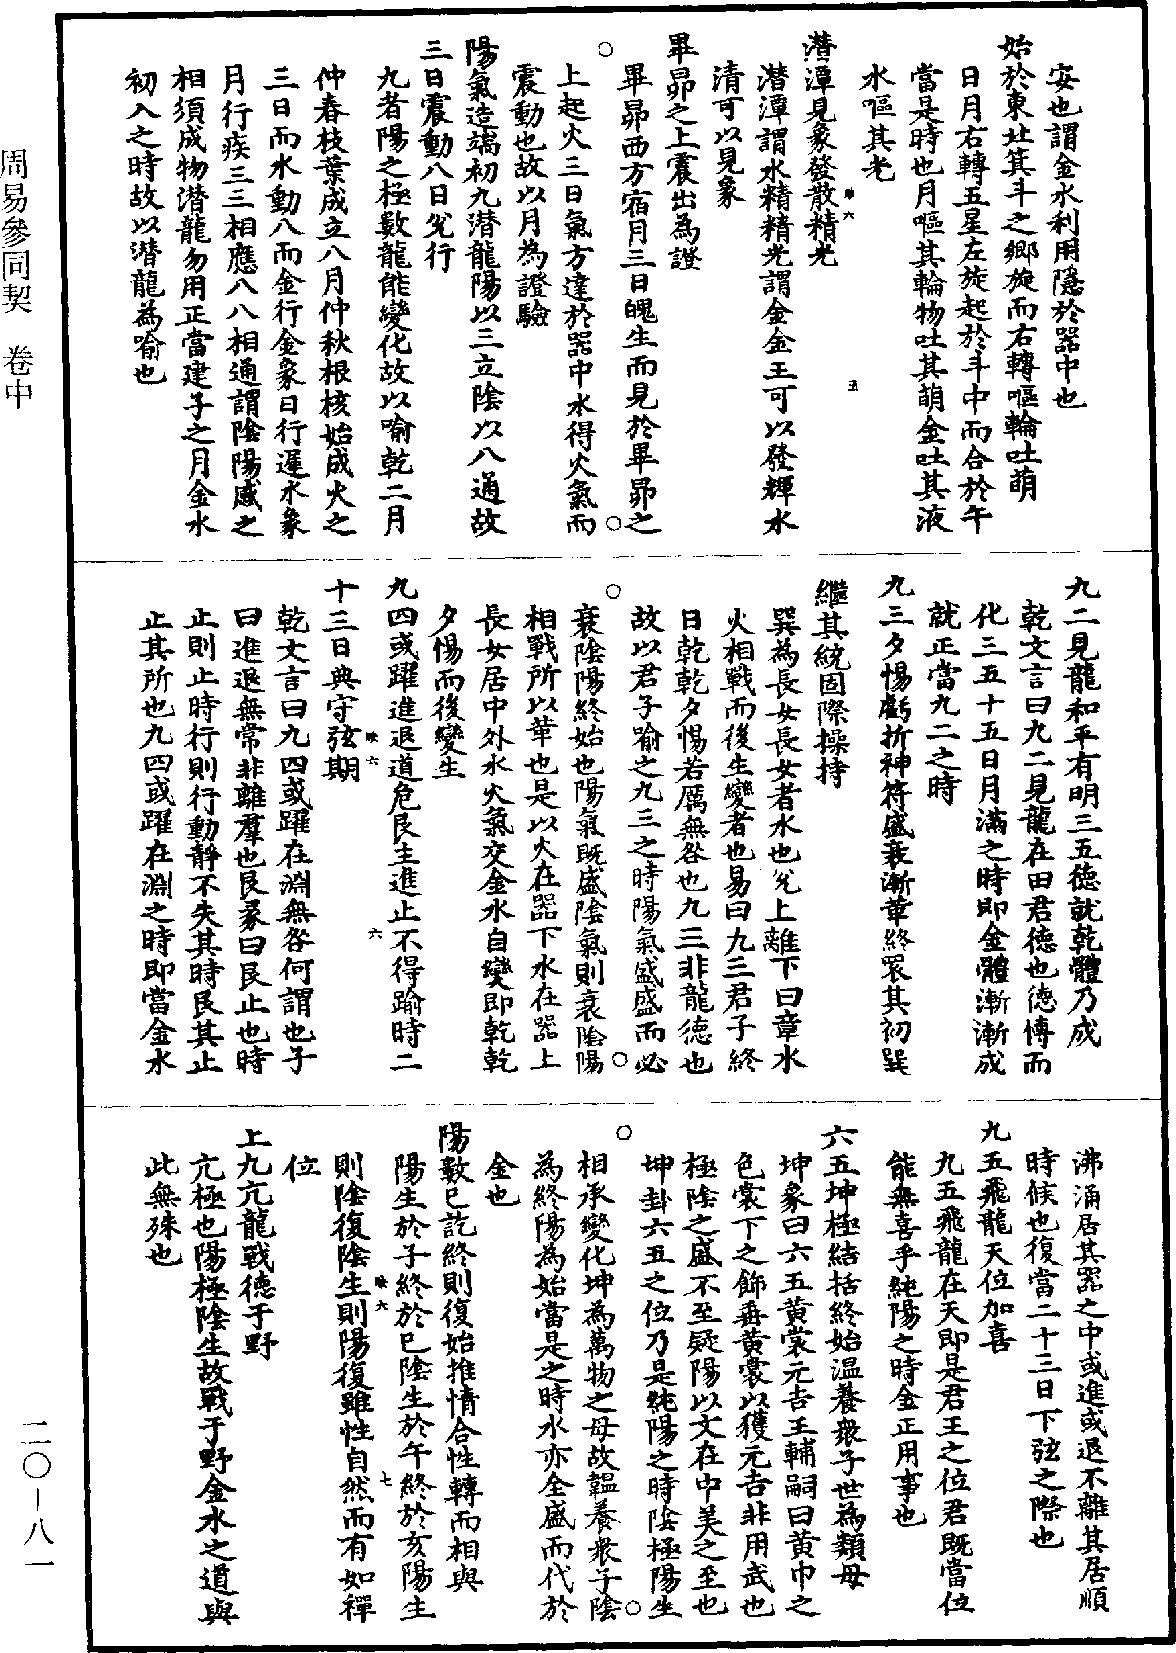 安也謂金水利用隱於器中也
始於東北箕斗之鄉旋而右轉嘔輪吐萌
日月右轉五星左旋起於斗中而合於午
當是時也月嘔其輪物吐其萌金吐其液
水嘔其老
潛潭見象發散精光
潛潭謂水精精光謂金金王可以發輝水
清可以見象
畢昴之上震出為證
畢昴西方宿月三日魄生而見於畢昴之
上起火三日氣方達於器中水得火氣而
震動也故以月為證驗
陽氣造端初九潛龍陽以三立陰以八通故
三日震動八日兌行
九者陽之極數龍能變化故以喻乾二月
仲春枝葉成立八月仲秋根核始成火之
三日而水動八而金行金象日行遲水象
月行疾三三相應八八相通謂陰陽感之
相須成物潛龍勿用正當建子之月金水
初入之時故以潛龍為喻也
九二見龍和平有明三五德就乾體乃成
乾文言曰九二見龍在田君德也德博而
化三五十五日月滿之時即金體漸漸成
就正當九二之時
九三夕惕虧折神符盛衰漸革終還其初巽
繼其統固際操持
巽為長女長女者水也兌上離下曰革水
火相戰而後生變者也易曰九三君子終
日乾乾夕惕若厲無咎也九三非龍德也
故以君子喻之九三之時陽氣盛盛而必
衰陰陽終始也陽氣既盛陰氣則衰陰陽
相戰所以革也是以火在器下水在器上
長女居中外水火氣交金水自變即乾乾
夕惕而後變生
九四或躍進退道危艮主進止不得踰時二
十三日典守弦期
乾文言曰九四或躍在淵無咎何謂也子
曰進退無常非離羣也艮彖曰艮止也時
止則止時行則行動靜不失其時艮其止
止其所也九四或躍在淵之時即當金水
沸涌居其器之中或進或退不離其居順
時候也復當二十三日下弦之際也
九五飛龍天位加喜
九五飛龍在天即是君王之位君既當位
能無喜乎純陽之時金正用事也
六五坤極結括終始溫養衆子世為類母
坤象曰六五黃裳元吉王輔嗣曰黃巾之
色裳下之飾垂黃裳以獲元吉非用武也
極陰之盛不至疑陽以文在中美之至也
坤卦六五之位乃是純陽之時陰極陽生
相承變化坤為萬物之母故韞養衆子陰
為終陽為始當是之時水亦全盛而代於
金也
陽數已訖終則復始推情合性轉而相與
陽生於子終於巳陰生於午終於亥陽生
則陰復陰生則陽復雖性自然而有如禪
位
上九亢龍戰德于野
亢極也陽極陰生故戰于野金水之道與
此無殊也
周易參同契 卷中
二〇－八一